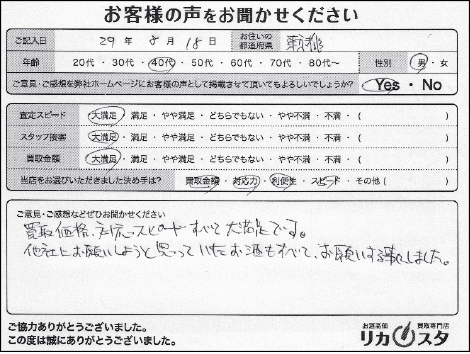 お客様の声をお聞かせください
ご記入日 29年 8月 18日 お住いの都道府県 東京都
年齢 20代・30代・40代・50代・60代・70代・80代〜 性別 男・女
ご意見・ご感想を弊社ホームページにお客様の声として掲載させて頂いてもよろしいでしょうか? Yes・No
査定スピード 大満足・満足・やや満足・どちらでもない・やや不満・不満・( )
スタッフ接客 大満足・満足・やや満足・どちらでもない・やや不満・不満・( )
買取金額 大満足・満足・やや満足・どちらでもない・やや不満・不満・( )
当店をお選びいただきました決め手は? 買取金額・対応力・利便性・スピード・その他( )
ご意見・ご感想などぜひお聞かせください
買取価格、対応、スピードすべて大満足です。
他社にお願いしようと思っていたお酒もすべて、お願いする事にしました。
ご協力ありがとうございました。
この度は誠にありがとうございました。
お酒高価 買取専門店
リカスタ